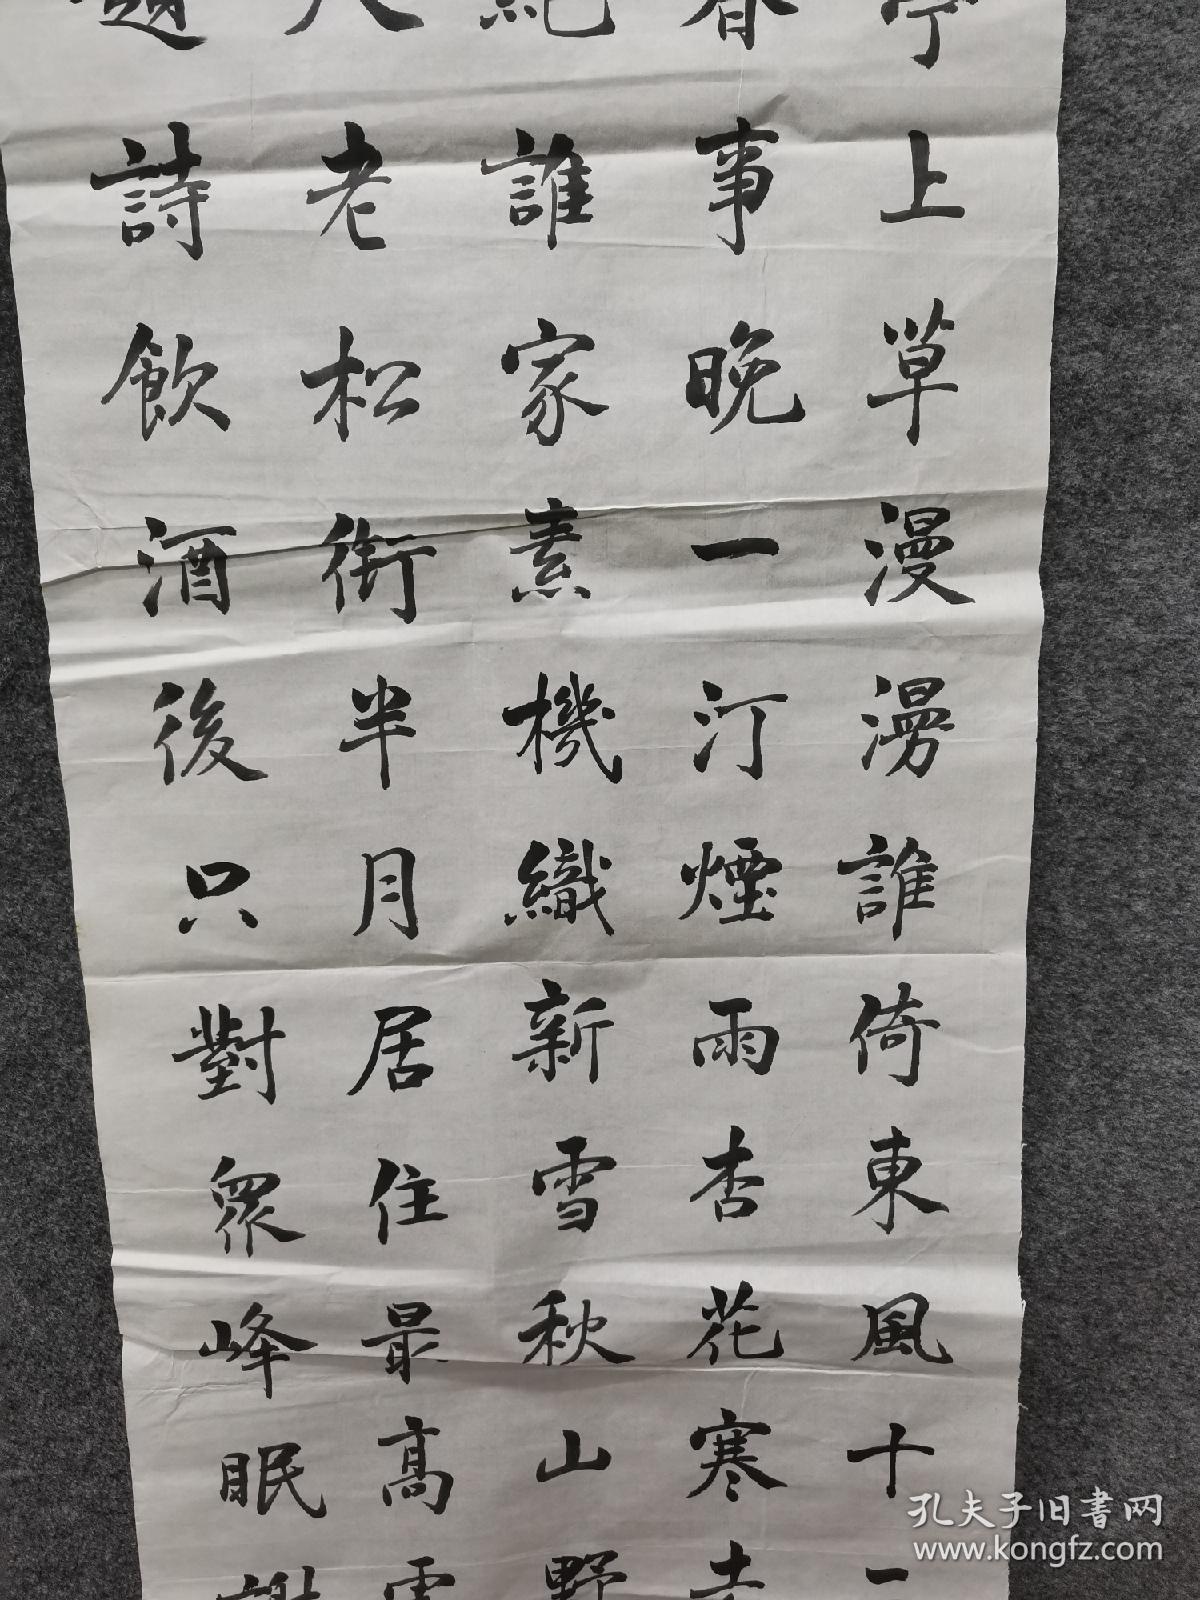 亭上草漫漫誰倚東風十一
春事晚一汀煙雨杏花寒
紀誰家素機織新雪秋山野
人老松衘半月居住最高
題詩飲酒後只對眾峰眠
孔夫子旧书网
www.kongfz.com